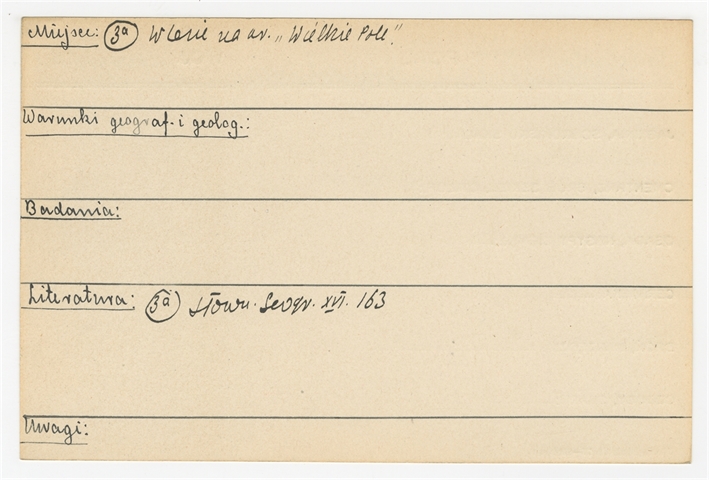 Miejsce: 3a W lesie na ur. „Wielkie Pole".
Warunki geograf. i geolog.:
Badania:
Literatura: 3a Słown. Geogr. XVI. 163
Uwagi: